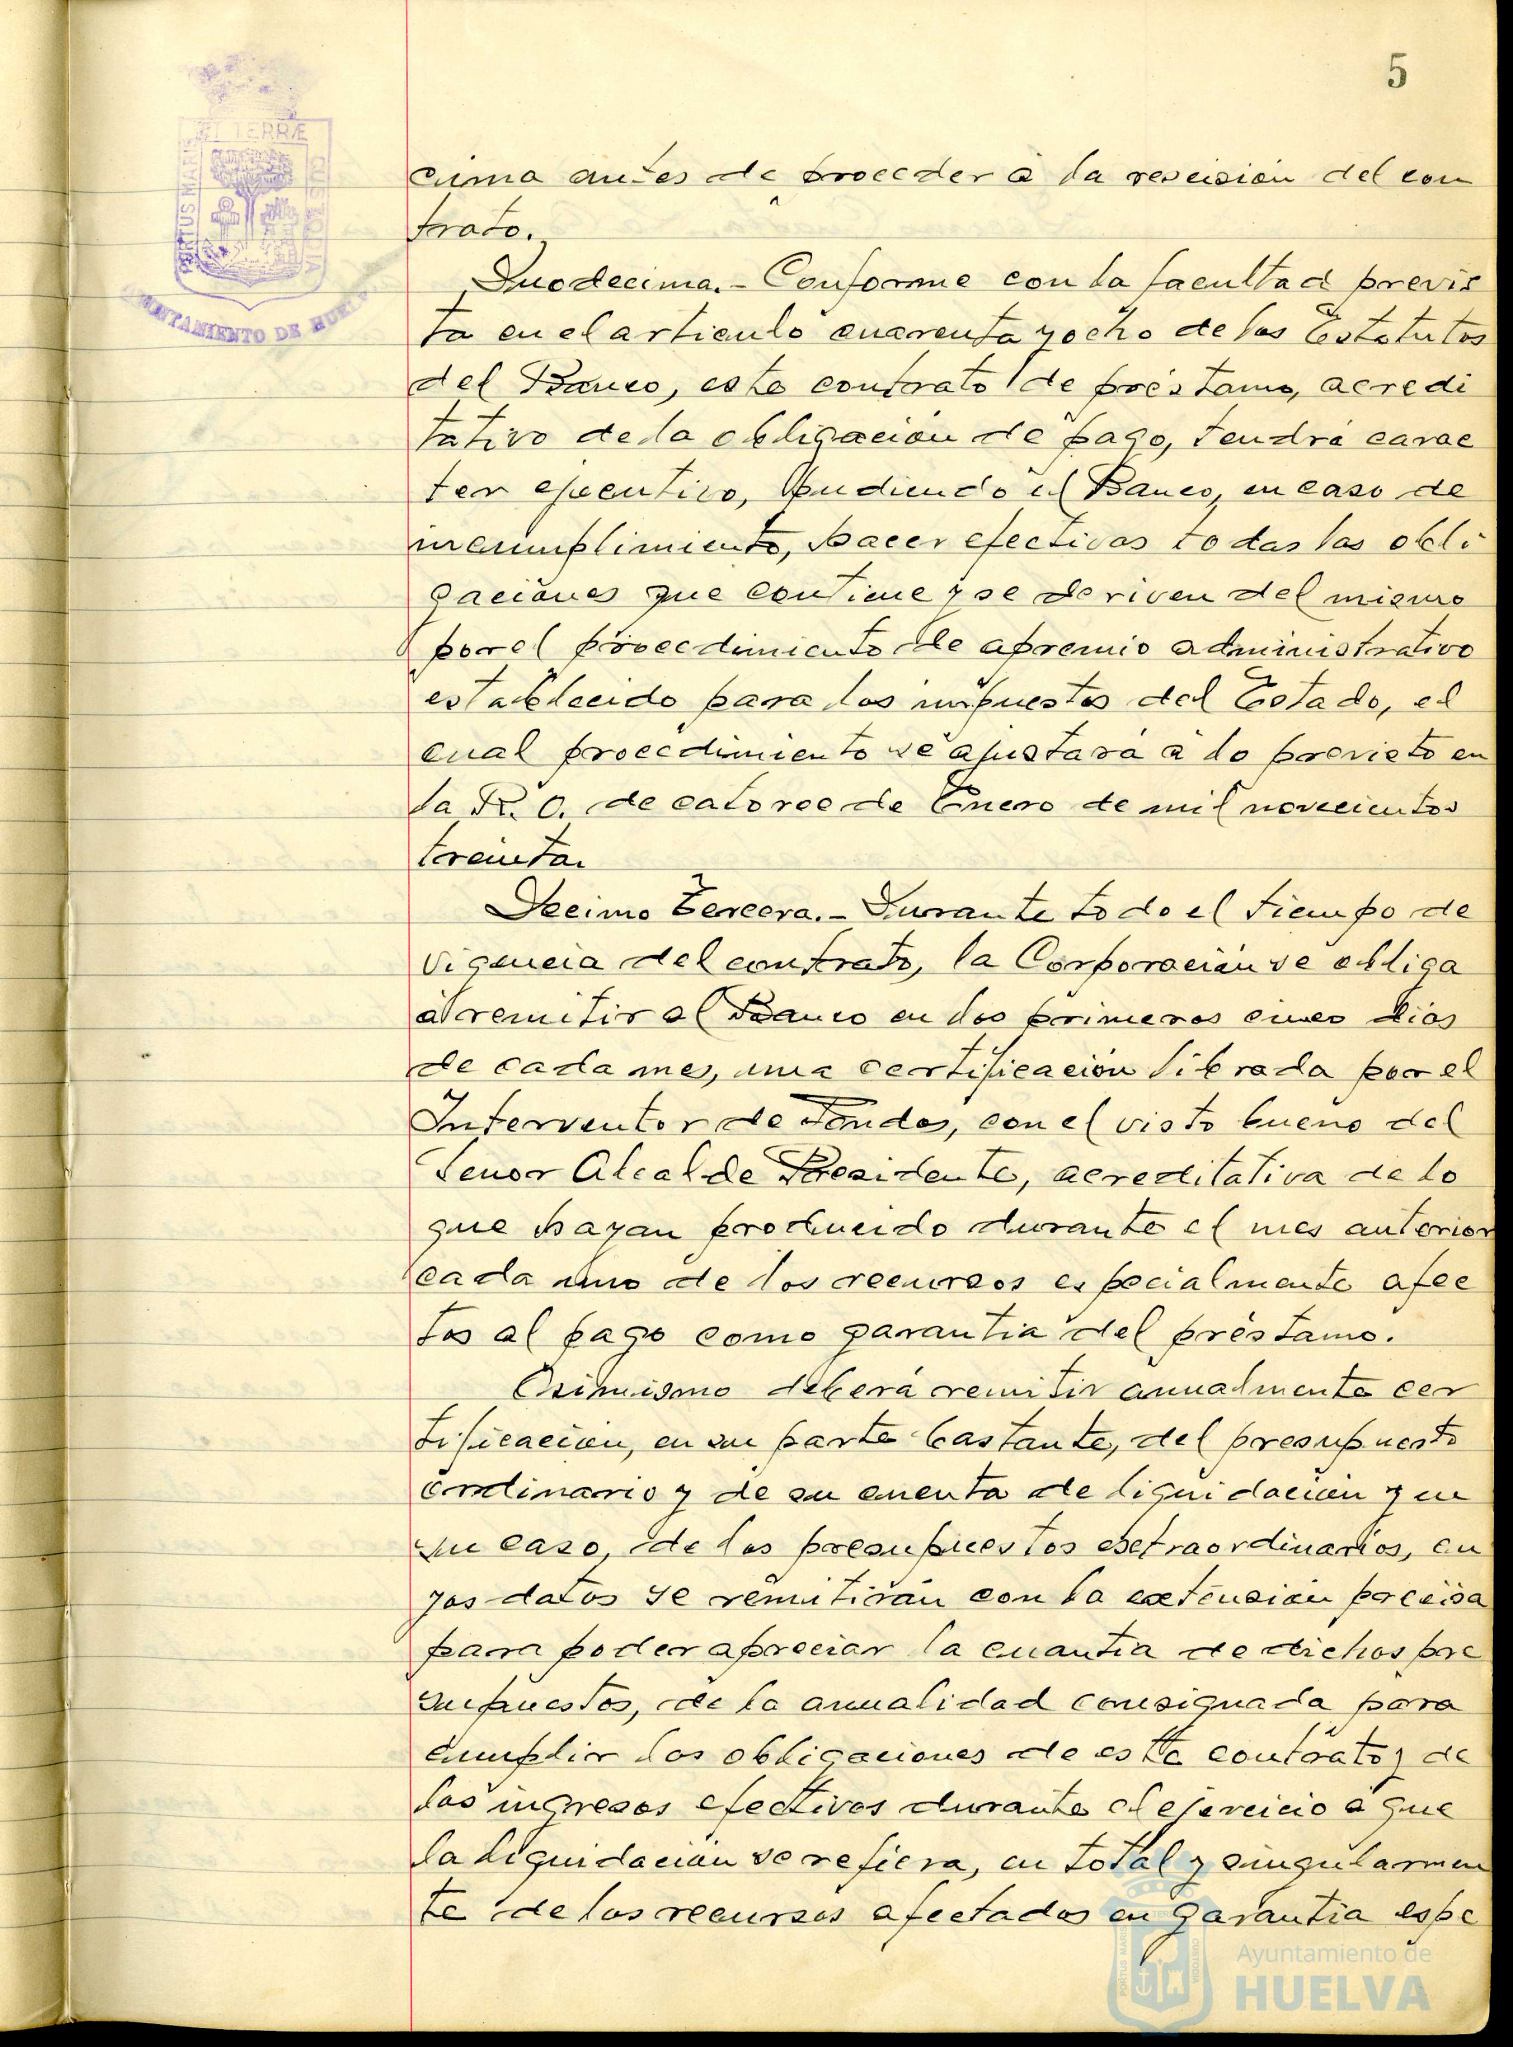 5
PORTUS MARIS ET TERRÆ CUSTODIA
AYUNTAMIENTO DE HUELVA
cima antes de proceder á la rescisión del con
trato.
Duodecima.- Conforme con la facultad previs
ta en el articulo cuarenta y ocho de los Estatutos
del Banco, este contrato de préstamo, acredi
tativo de la obligación de pago, tendrá carac
ter ejecutivo, pudiendo el Banco, en caso de
incumplimiento, hacer efectivas todas las obli
gaciones que contiene y se deriven del mismo
por el procedimiento de apremio administrativo
establecido para los impuestos del Estado, el
cual procedimiento se ajustará á lo previsto en
la R. O. de catorce de Enero de mil novecientos
treinta.
Decimo Tercera.- Durante todo el tiempo de
vigencia del contrato, la Corporación se obliga
á remitir al Banco en los primeros cinco dias
de cada mes, una certificación librada por el
Interventor de Fondos, con el visto bueno del
Señor Alcalde Presidente, acreditativa de lo
que hayan producido durante el mes anterior
cada uno de los recursos especialmente afec
tos al pago como garantia del préstamo.
Asimismo deberá remitir anualmente cer
tificación, en su parte bastante, del presupuesto
ordinario y de su cuenta de liquidación y en
su caso, de los presupuestos extraordinarios, cu
yos datos se remitirán con la extensión precisa
para poder apreciar la cuantia de dichos pre
supuestos, de la anualidad consignada para
cumplir las obligaciones de este contrato y de
los ingresos efectivos durante el ejercicio á que
la liquidación se refiera, en total y singularmen
te de los recursos afectados en garantia espe
Ayuntamiento de
HUELVA